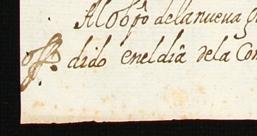 Al off.o dela nueva
off.o dido eneldia dela Con